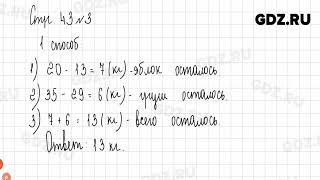 GDZ.RU
Стр 43 №3
1 способ
1) 20 - 13 = 7 (кг) - яблок осталось
2) 35 - 29 = 6 (кг) - груш осталось.
3) 7 + 6 = 13 (кг) - всего осталось.
Ответ: 13 кг.